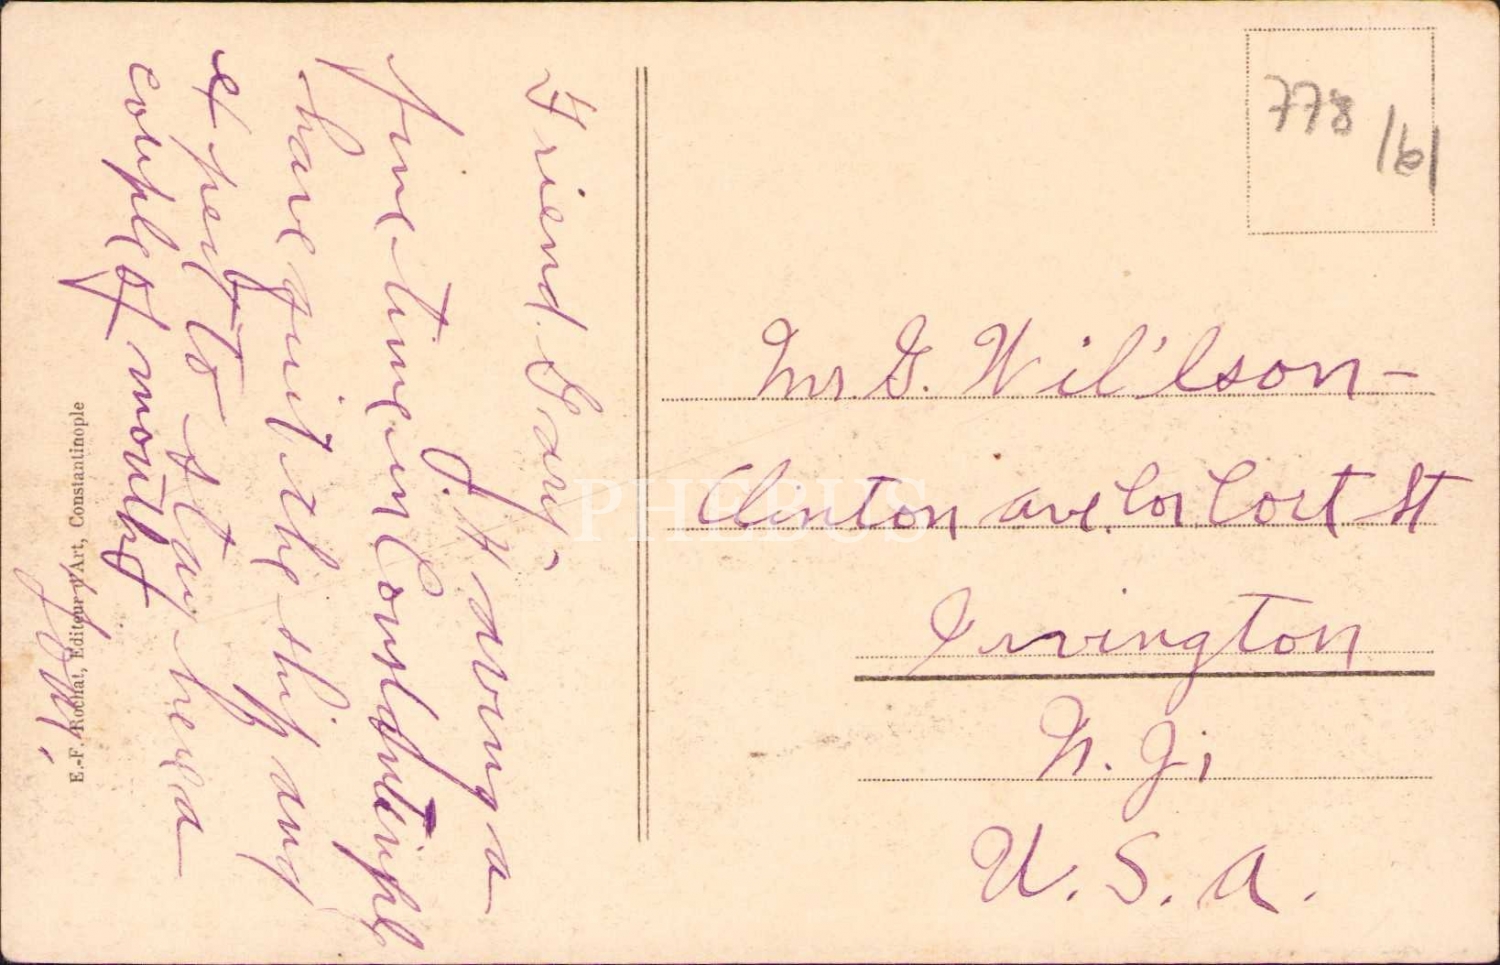 Friend Gary,
J. Having a
fine time in Constantinple
have quit the ship and
expect to stay here a
couple of months
E.-F. Rochat, Editeur d'Art, Constantinople
778
/61
Mr G. Wil'lson-
Clinton ave. Cor. Cort St
Irvington
N. J.
U. S. A.
PHEBUS